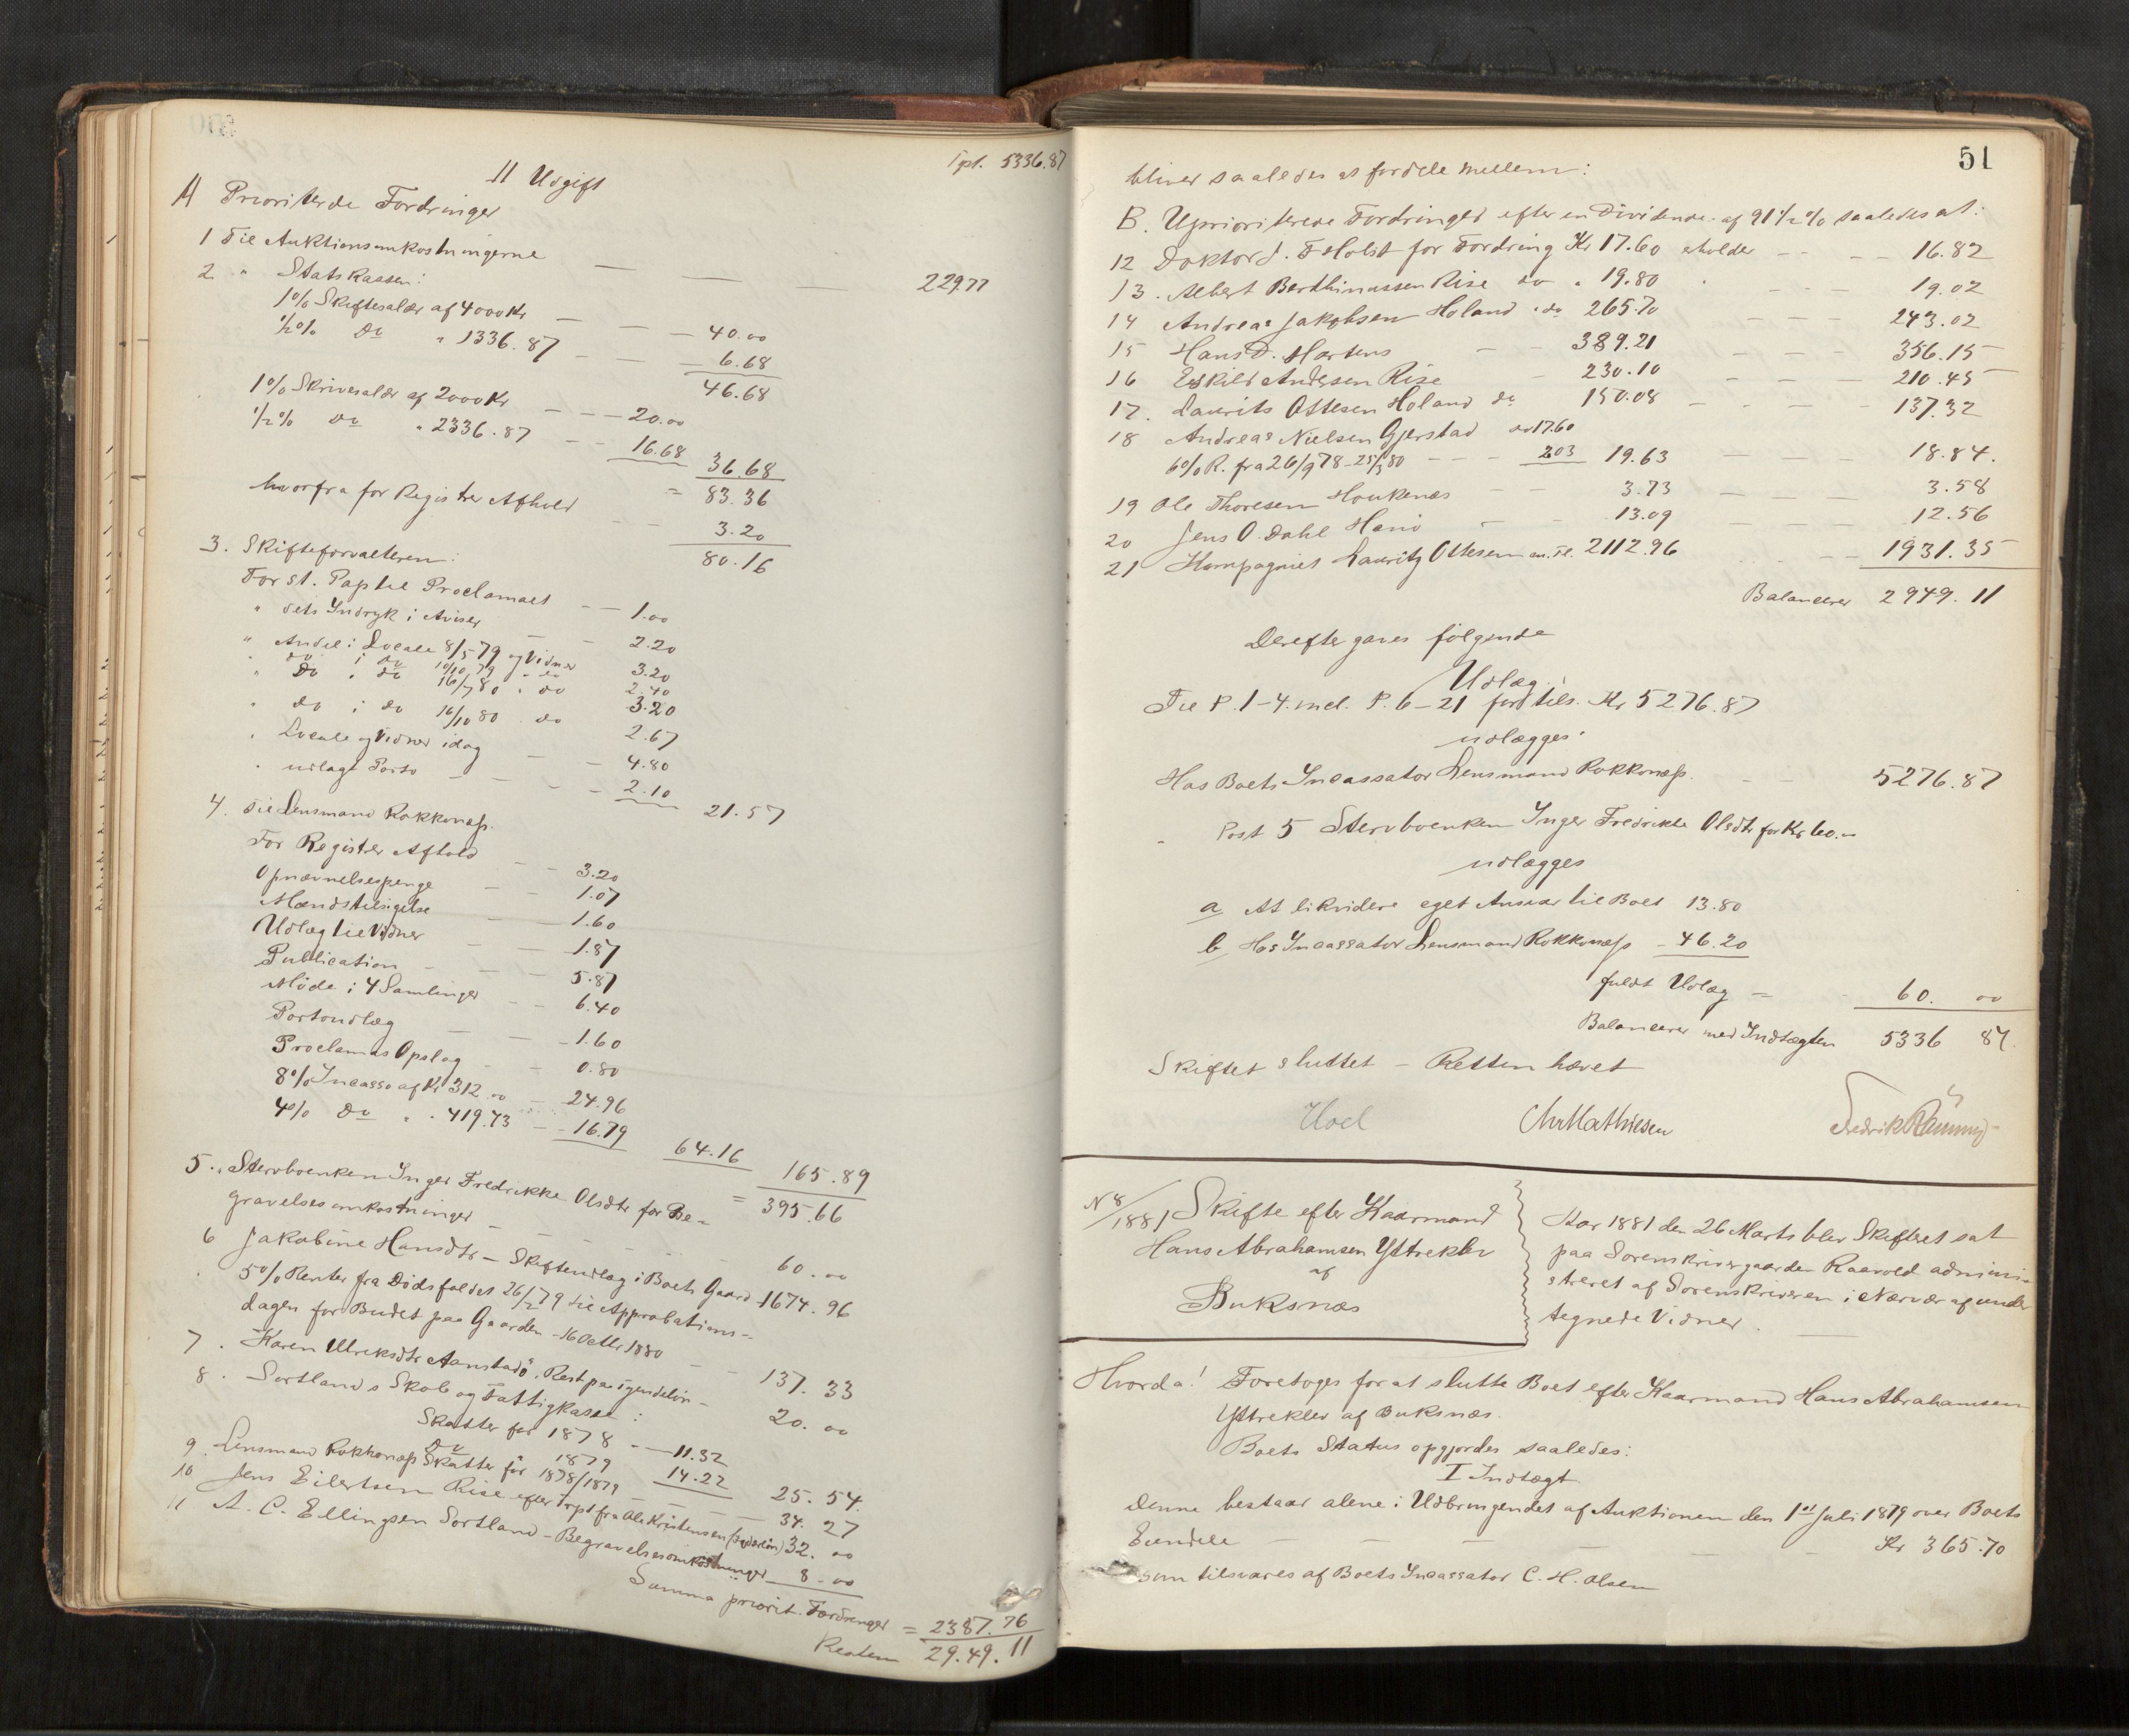 Tpt. 5336.87
II Udgift
A Prioriterede Fordringer
1 Til Auktionsomkostningerne — — — 229.77
2 " Statskassen:
1% Skiftesalær af 4000 Kr — — — 40.00
1/2% Do " 1336.87 — — 6.68
46.68
1% Skriversalær af 2000 Kr — — — 20.00
1/2% Do " 2336.87 — — 16.68 36.68
= 83.36
hvorfra for Registrer Afhold — — 3.20
80.16
3. Skifteforvalteren:
For st. Pap til Proclamaet — — 1.00
" dets Indryk i Aviser — — 2.20
" Andel i Locale 8/5 79 og Vidner 3.20
" do i do 10/10 79 " do 2.40
" Do " do 16/7 80 " do 3.20
" do i do 16/10 80 " do 2.67
" Locale og Vidner idag — — 4.80
" udlagt Porto — — — 2.10 21.57
4. Til Lensmand Rokkonæs.
For Registrer Afhold — — 3.20
Opnævnelsespenge — — 1.07
Mændstilsigelse — 1.60
Udlæg til Vidner — — 1.87
Publication — — 5.87
Møde i 4 Samlinger — — 6.40
Portoudlæg — — 1.60
Proclamas Opslag — 0.80
8% Incasso af Kr 312.00 — 24.96
4% Do " " 419.73 — — 16.79 64.16 165.89
= 395.66
5. " Stervboenken Inger Fredrikke Olsdtr for Be-
gravelsesomkostninger — — — — 60.00
6 Jakobine Hansdtr — Skifteudlæg i Boets Gaard 1674.96
5% Renter fra Dødsfaldet 26/2 79 til Approbations-
dagen for Budet paa Gaarden - 16 Octbr 1880 — — 137.33
7. Karen Ulriksdtr Aanstad, Rest paa Tjendeløn - 20.00
8. Sortlands Skole og Fattigkasse:
Skatter for 1878 — — 11.32
Do 1879 14.22 25.54.
9. Lensmand Rokkonæs Skatter for 1878/1879 — — — 34.27
10 Jens Eilertsen Rise efter Trpt fra Ole Kristensen 32.00
11 A. C. Ellingsen Sortland - Begravelsesomkostninger 8.00
Summa priorit. Fordringer = 2387.76
Resten 29.49.11
51
bliver saaledes at fordele mellem:
B. Uprioriterede Fordringer efter en Dividende af 91 1/2 % saaledes at:
12 Doktor J. F Holst for Fordring Kr 17.60 erholder — — — — 16.82
13. Albert Berthinussen Rise do " 19.80 " — — — 19.02
14 Andreas Jakobsen Holand " do 265.70 — — — 243.02
15 Hans D. Martens — — 389.21 — — — 356.15
16 Eskild Andersen Rise — 230.10 — — — 210.45
17. Laurits Ottesen Holand do 150.08 — — — 137.32
18 Andreas Nielsen Gjerstad do 17.60
6% R. fra 26/9 78 - 25/3 80 — — — 203 19.63 — — — 18.84.
19 Ole Thoresen Houkenes — — 3.73 — — — 3.58
20 Jens O. Dahl Hanø — — 13.09 — 12.56
21 Kompagniet Lauritz Ottesen m. Fl. 2112.96 — — 1931.35
Balancerer 2949.11
Derefter gaves følgende
Udlæg:
Til P. 1-4. incl. P. 6-21 ford tils. Kr 5276.87
udlægges:
Hos Boets Incassator Lensmand Rokkonæs. — — 5276.87
" Post 5 Stervboenken Inger Fredrikke Olsdtr for Kr 60.00
udlægges
a At likvidere eget Ansvar til Boet 13.80
b Hos Incassator Lensmand Rokkonæs - 46.20
fuldt Udlæg — 60. 00
Balancerer med Indtægten 5336 87.
Skiftet sluttet — Retten hævet
Hoel Chr Mathiesen Fredrik
N 8/1881 Skifte efter Kaarmand
Hans Abrahamsen Yttrekler
af
Buksnæs
Aar 1881 den 26 Marts blev Skifteret sat
paa Sorenskrivergaarden Raavold admini-
streret af Sorenskriveren i Nærvær af under
tegnede Vidner. —
Hvorda! Foretoges for at slutte Boet efter Kaarmand Hans Abrahamsen
Yttrekler af Buksnæs.
Boets Status opgjordes saaledes:
I Indtægt
Denne bestaar alene i Udbringendet af Auktionen den 1st Juli 1879 over Boets
Eiendele — — — — — — Kr 365.70
som tilsvares af Boets Incassator C. H. Olsen